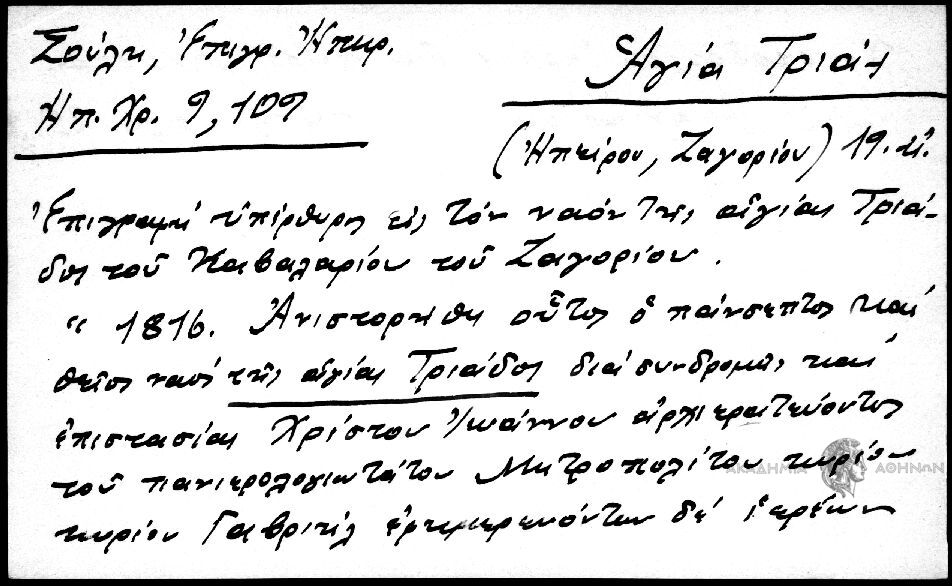 Σούλη, Ἐπιγρ. Ἠπειρ.
Ἠπ. Χρ. 9, 109
Ἁγία Τριάς
(Ἠπείρου, Ζαγορίου) 19. αἰ.
Ἐπιγραφή ὑπέρθυρος εἰς τόν ναόν τῆς ἁγίας Τριά-
δος τοῦ Καβαλαρίου τοῦ Ζαγορίου.
" 1816. Ἀνιστορήθη οὗτος ὁ πάνσεπτος καί
θεῖος ναός τῆς ἁγίας Τριάδος διά συνδρομῆς καί
ἐπιστασίας Χρίστου Ἰωάννου ἀρχιερατεύοντος
τοῦ πανιερολογιωτάτου Μητροπολίτου κυρίου
κυρίου Γαβριήλ ἐφημερευόντων δέ ἱερέων
ΑΚΑΔΗΜΙΑ ΑΘΗΝΩΝ